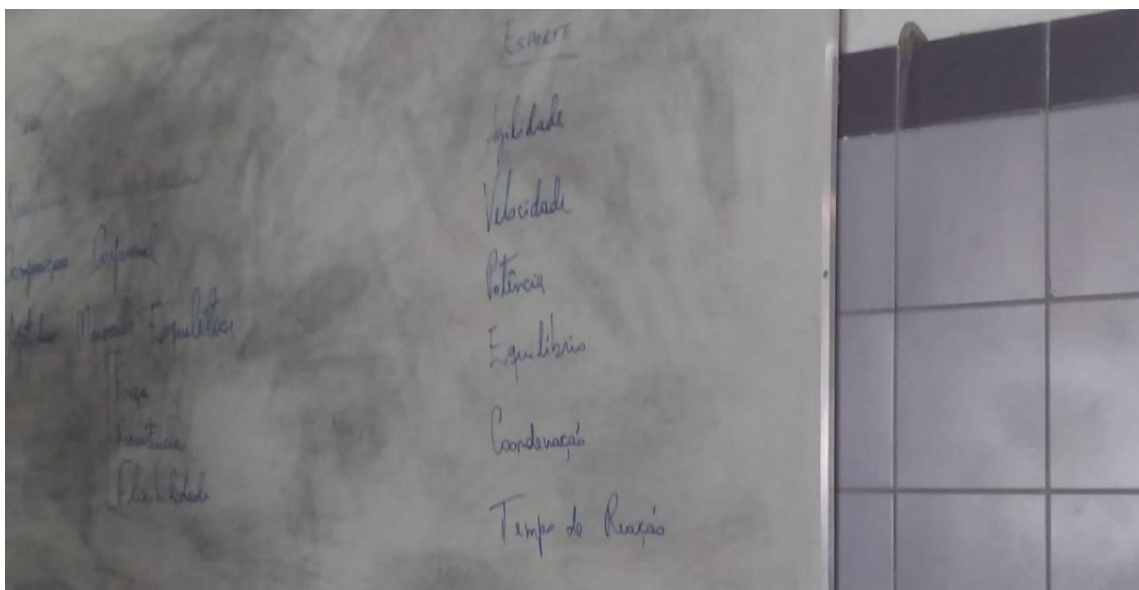 Composição Corporal
Aptidão Músculo Esquelética
Força
Resistência
Flexibilidade
ESPORTE
Agilidade
Velocidade
Potência
Equilíbrio
Coordenação
Tempo de Reação